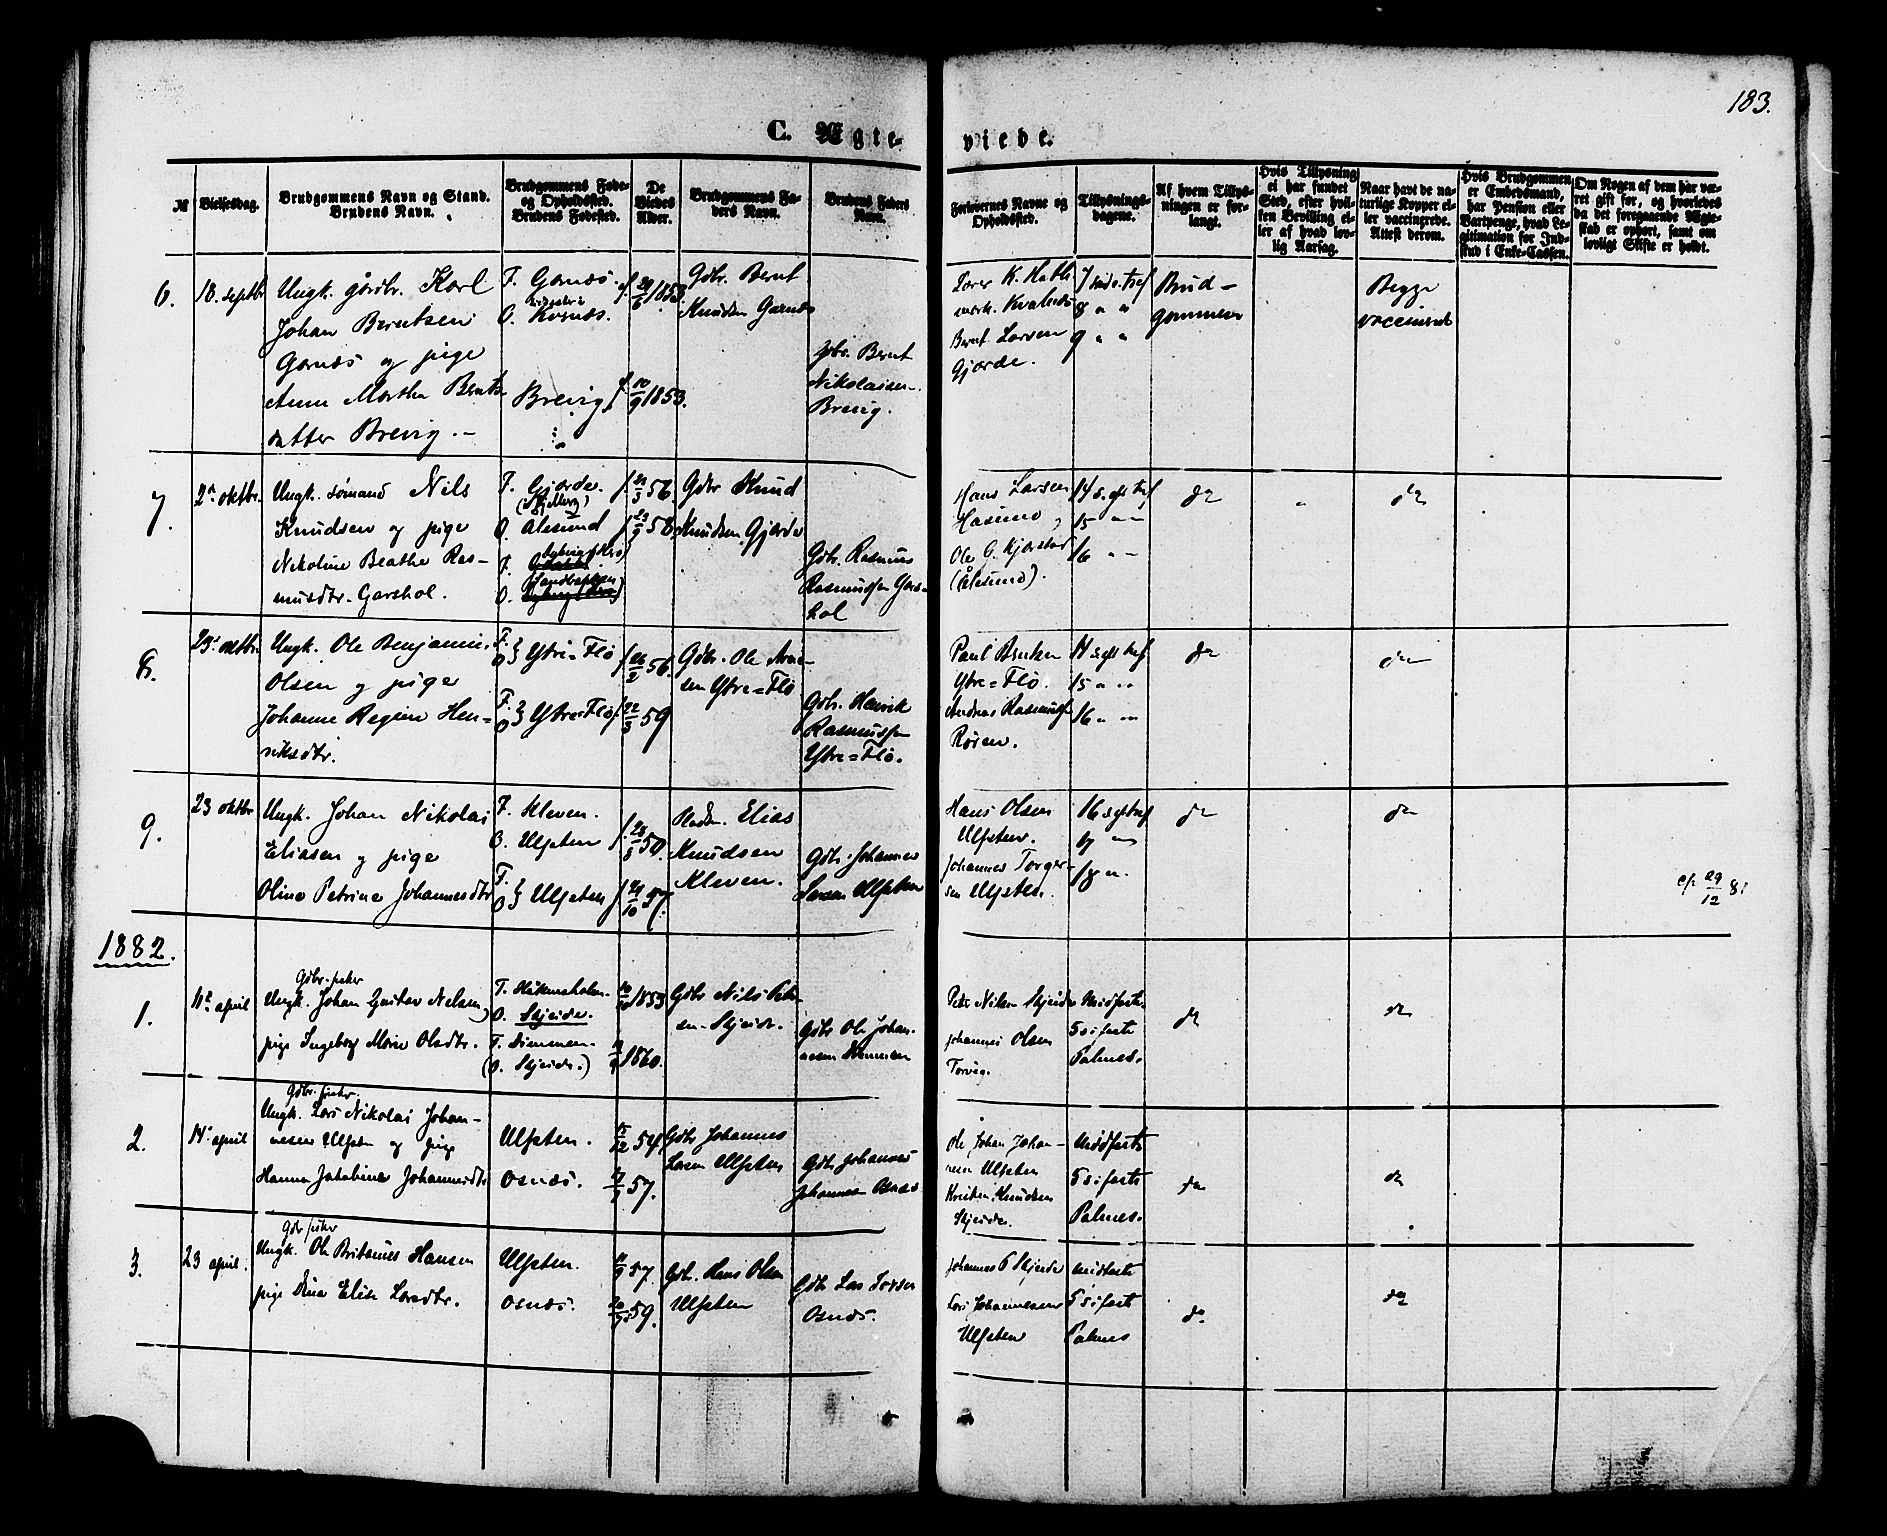 183.
C. Ægte-viede.
№ Vielsesdag. Brudgommens Navn og Stand. Brudens Navn. Brudgommens Føde- og Opholdssted. Brudens Fødested. De Viedes Alder. Brudgommens Faders Navn. Brudens Faders Navn. Forlovernes Navne og Opholdssted. Tillysningsdagene. Af hvem Tillysningen er forlangt. Hvis Tillysning ei har fundet Sted, efter hvilken Bevilling eller af hvad lovlig Aarsag. Naar havt de naturlige Kopper eller vaccinerede. Attest derom. Hvis Brudgommen er Embedsmand, har Pension eller Vartpenge, hvad Legitimation for Indskud i Enke-Cassen. Om Nogen af dem har været gift før, og hvorledes da det foregaaende Ægteskab er ophørt, samt om lovligt Skifte er holdt.
6. 18. septbr
Ungk. gårdbr. Karl
Johan Berntsen
Garnæs og pige
Anne Marthe Bernts
datter Brevig.
F. Garnæs.
O. Kornæs.
Brevig
f. 29/6 1853.
f. 10/9 1853.
Gdbr. Bernt
Knudsen Garnæs
Gdbr. Bernt
Nikolaisen
Brevig.
Bernt Larsen
Gjørde.
Brud-
gommen
Begge
vaccineret
7. 2. oktbr.
Ungk. sømand Nils
Knudsen og pige
Nikoline Beathe Ras-
musdtr. Garshol.
F. Gjørde.
O. Ålesund
56.
58.
Gdbr Knud
Knudsen Gjørde
Gdbr. Rasmus
Rasmussen Gars-
hol
Hans Larsen
Hasund,
Ole G. Kjørstad
(Ålesund).
14 s. e. tref
15 " "
16 " "
do
"
do
8. 23. oktbr.
Ungk. Ole Benjamin
Olsen og pige
Johanne Regine Hen-
riksdtr.
F. O. } Ytre=Flø
F. O. } Ytre=Flø
f. 26/2 56.
f. 22/3 59
Gdbr. Ole Arne-
sen Ytre=Flø
Gdbr. Henrik
Rasmussen
Ytre=Flø.
Paul
Ytre=Flø.
Andreas Rasmussen
Røren.
14 s. e. tref
15 " "
16 " "
do
do
9. 23 oktbr
Ungk. Johan Nikolai
Eliasen og pige
Oline Petrine Johannesdtr
F. Kleven.
O. Ulfsten
F. O. } Ulfsten
f. 28/8 50.
57.
Pladsm. Elias
Knudsen
Kleven.
Gdbr. Johannes
Larsen Ulfsten
Hans Olsen
Ulfsten.
Johannes Torger-
sen Ulfsten.
16 s. e. tref
17 "
18 "
do
do
29/12 81
1882.
1. 11. april
Gdbr. fisker
Ungk. Johan Gustav Nelsen,
pige Ingeborg Marie Olsdtr.
F. Håkonsholm.
O. Skjeide.
F. Dimmen.
(O. Skjeide.)
1853
1860.
Gdbr Nils Peter-
sen Skjeide.
Gdbr Ole Johan-
nesen Dimmen
Peter Nilsen Skjeide
Johannes Olsen
Torvig.
Midfaste
5 s i faste
Palmes.
do
do
2. 14. april
Gdbr. fisker.
Ungk. Lars Nikolai Johan-
nesen Ulfsten og pige
Hanna Jakobine Johannesdtr
Ulfsten.
Osnæs.
54
57.
Gdbr Johannes
Larsen Ulfsten
Gdbr Johannes
Johannesen Osnæs
Ole Johan Johan-
nesen Ulfsten
Knudsen
Skjeide.
Midfaste
5 s i faste
Palmes.
do
do
3. 23 april.
Gdbr fisker
Ungk. Ole Britanus Hansen
pige Dina Elise Larsdtr.
Ulfsten.
Osnæs.
57.
59.
Gdbr. Hans Olsen
Ulfsten
Gdbr Lars Larsen
Osnæs.
Johannes P Skjeide
Lars Johannesen
Ulfsten
Midfaste
5 s i faste
Palmes
do.
do